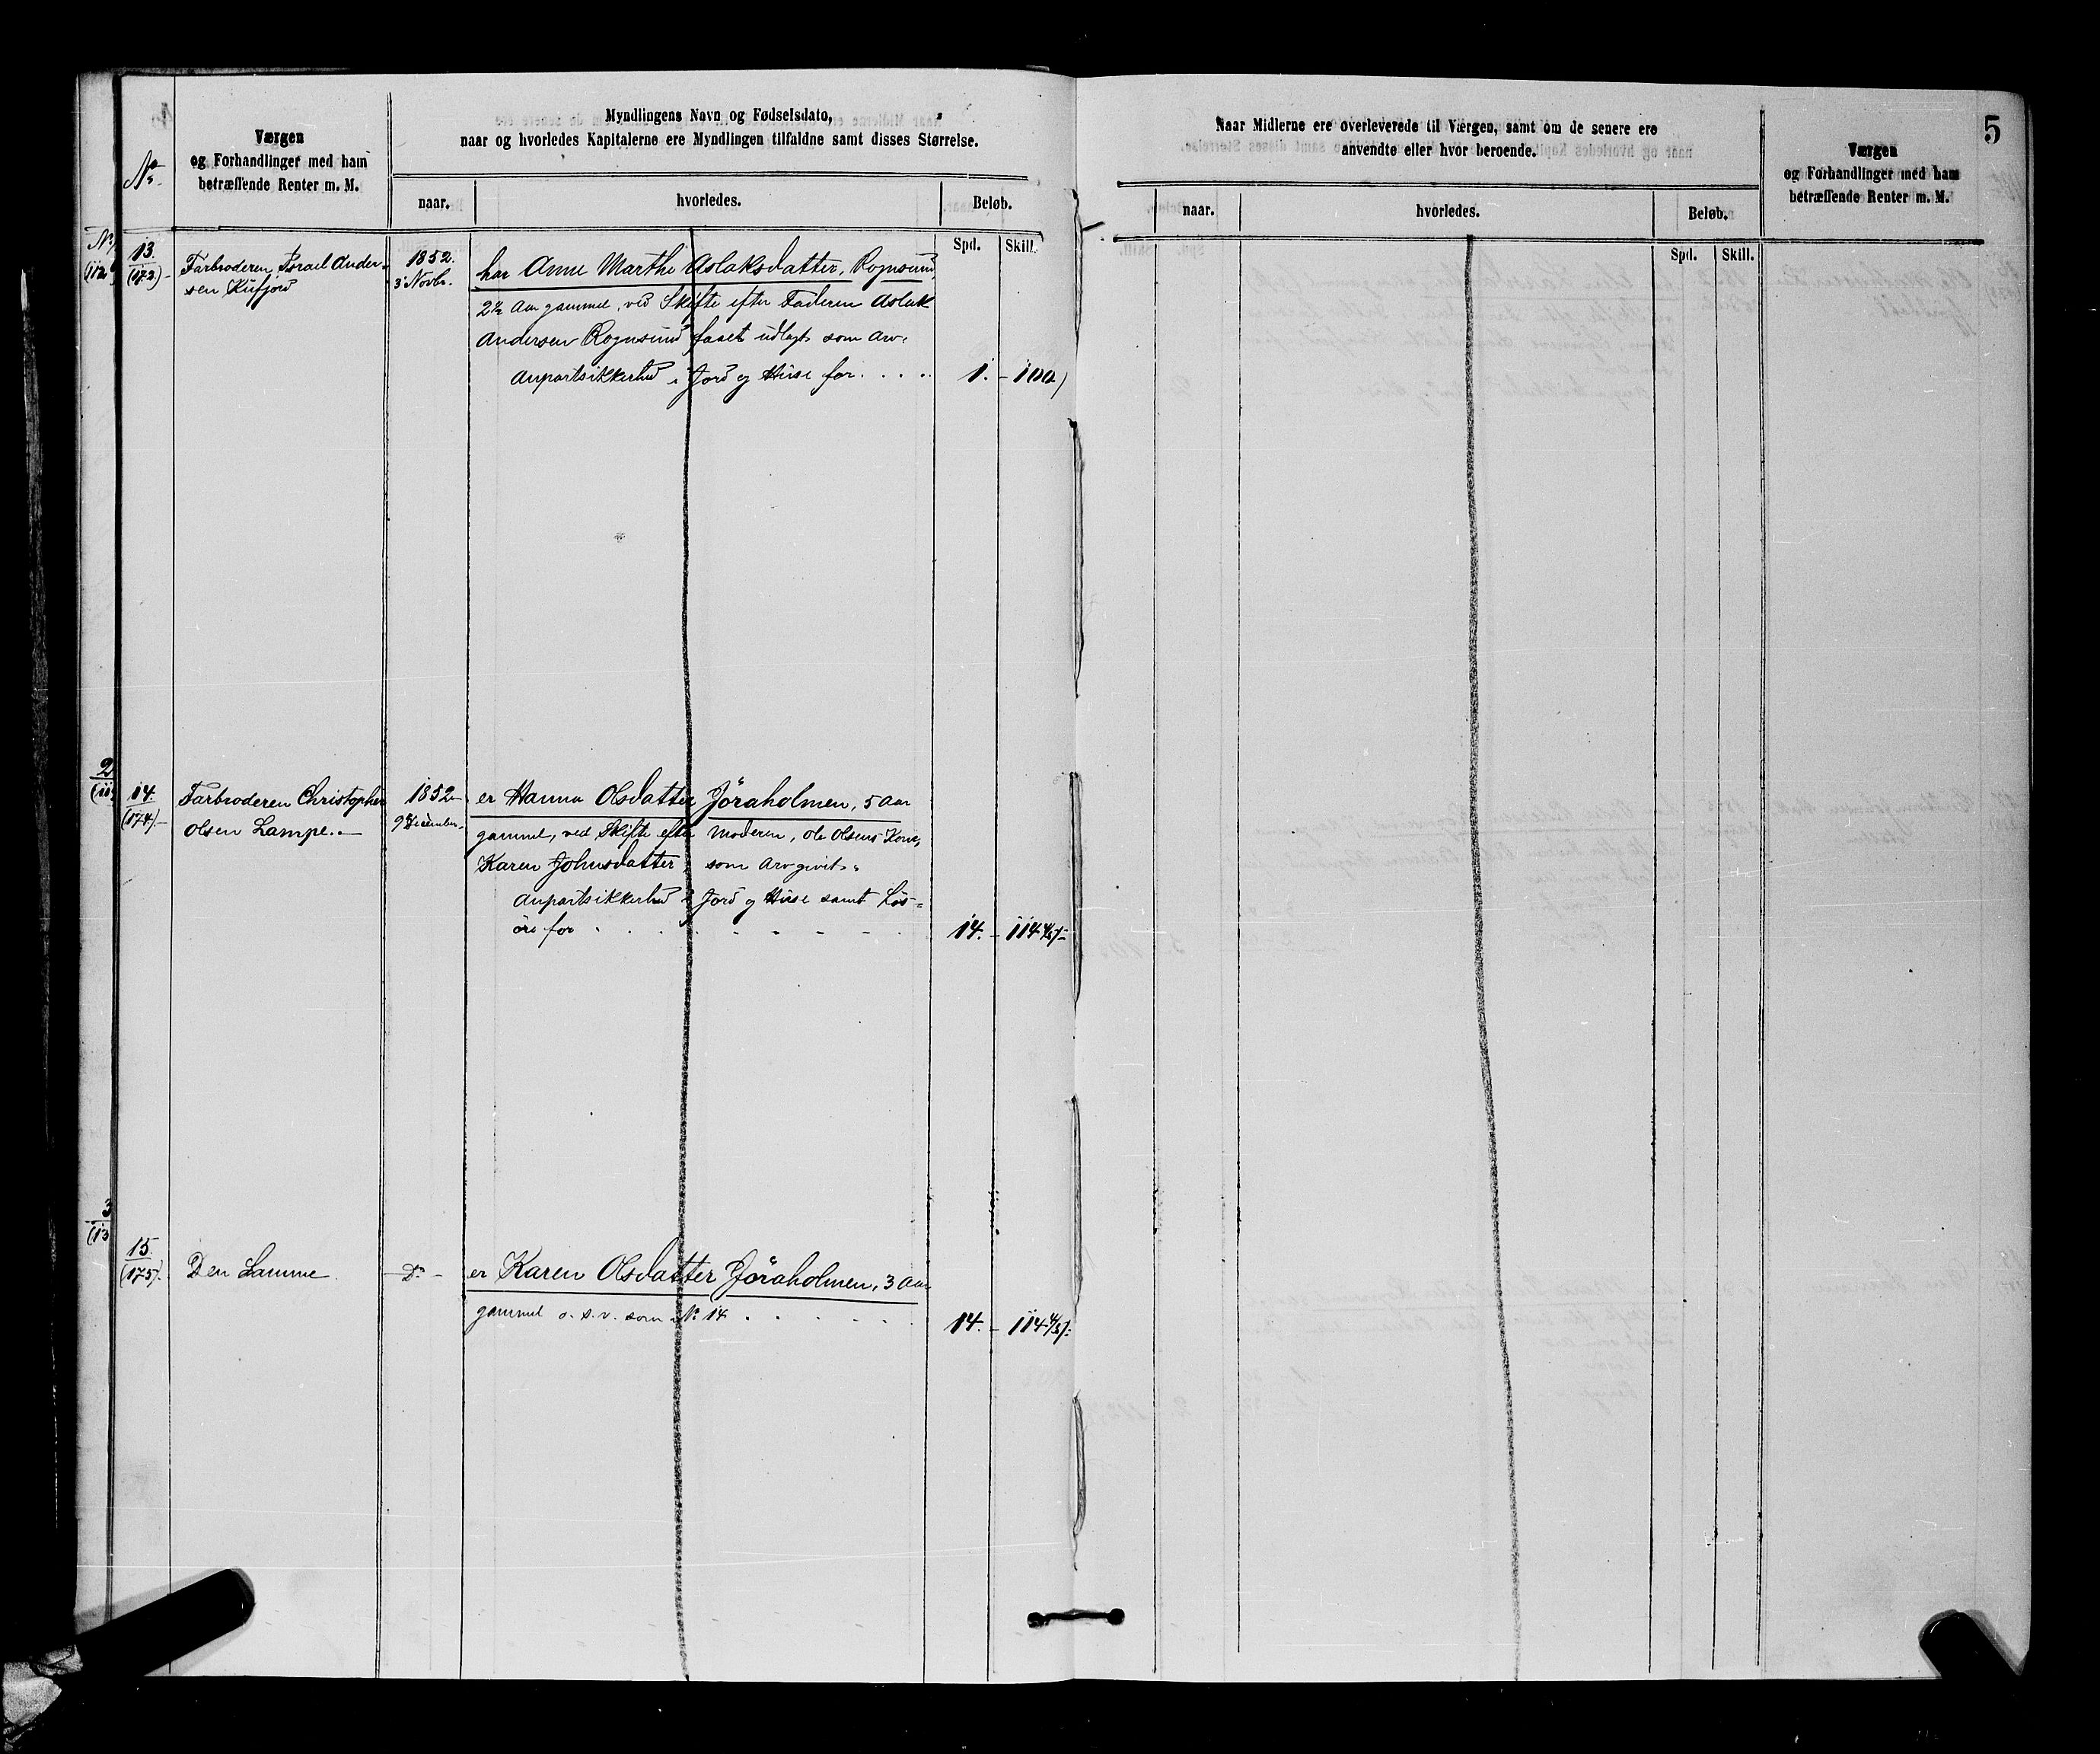 5
Myndlingens Navn og Fødselsdato,
naar og hvorledes Kapitalerne ere Myndlingen tilfaldne samt disses Størrelse.
Naar Midlerne ere overleverede til Værgen, samt om de senere ere
anvendte eller hvor beroende.
No.
Værgen
og Forhandlinger med ham
betræffende Renter m. M.
naar.
hvorledes.
Beløb.
Spd. Skill.
naar.
hvorledes.
Beløb.
Spd. Skill.
Værgen
og Forhandlinger med ham
betræffende Renter m. M.
13.
(173)
Farbroderen Israel Ander-
sen Kufjord
1852.
3 Novbr.
har Anne Marthe Aslaksdatter, Rognsund
2½ Aar gammel, ved Skifte efter Faderen Aslak
Andersen Rognsund faaet udlagt som Arv,
Anpartsikkerhed i Jord og Huse for . . . .
1. - 100
14.
(174).
Farbroderen Christopher
Olsen Lampe.
1852
9 December
er Hanna Olsdatter Jöraholmen, 5 Aar
gammel, ved Skifte efter Moderen, Ole Olsens Kone,
Karen Johnsdatter, som Arv givet
Anpartsikkerhed i Jord og Huse samt Lös=
öre for . . . . . .
14. - 114 4/5
15.
(175).
Den Samme
Do
er Karen Olsdatter Jöraholmen, 3 Aar
gammel o. s. v. som No 14 . . . . .
14. - 114 4/5